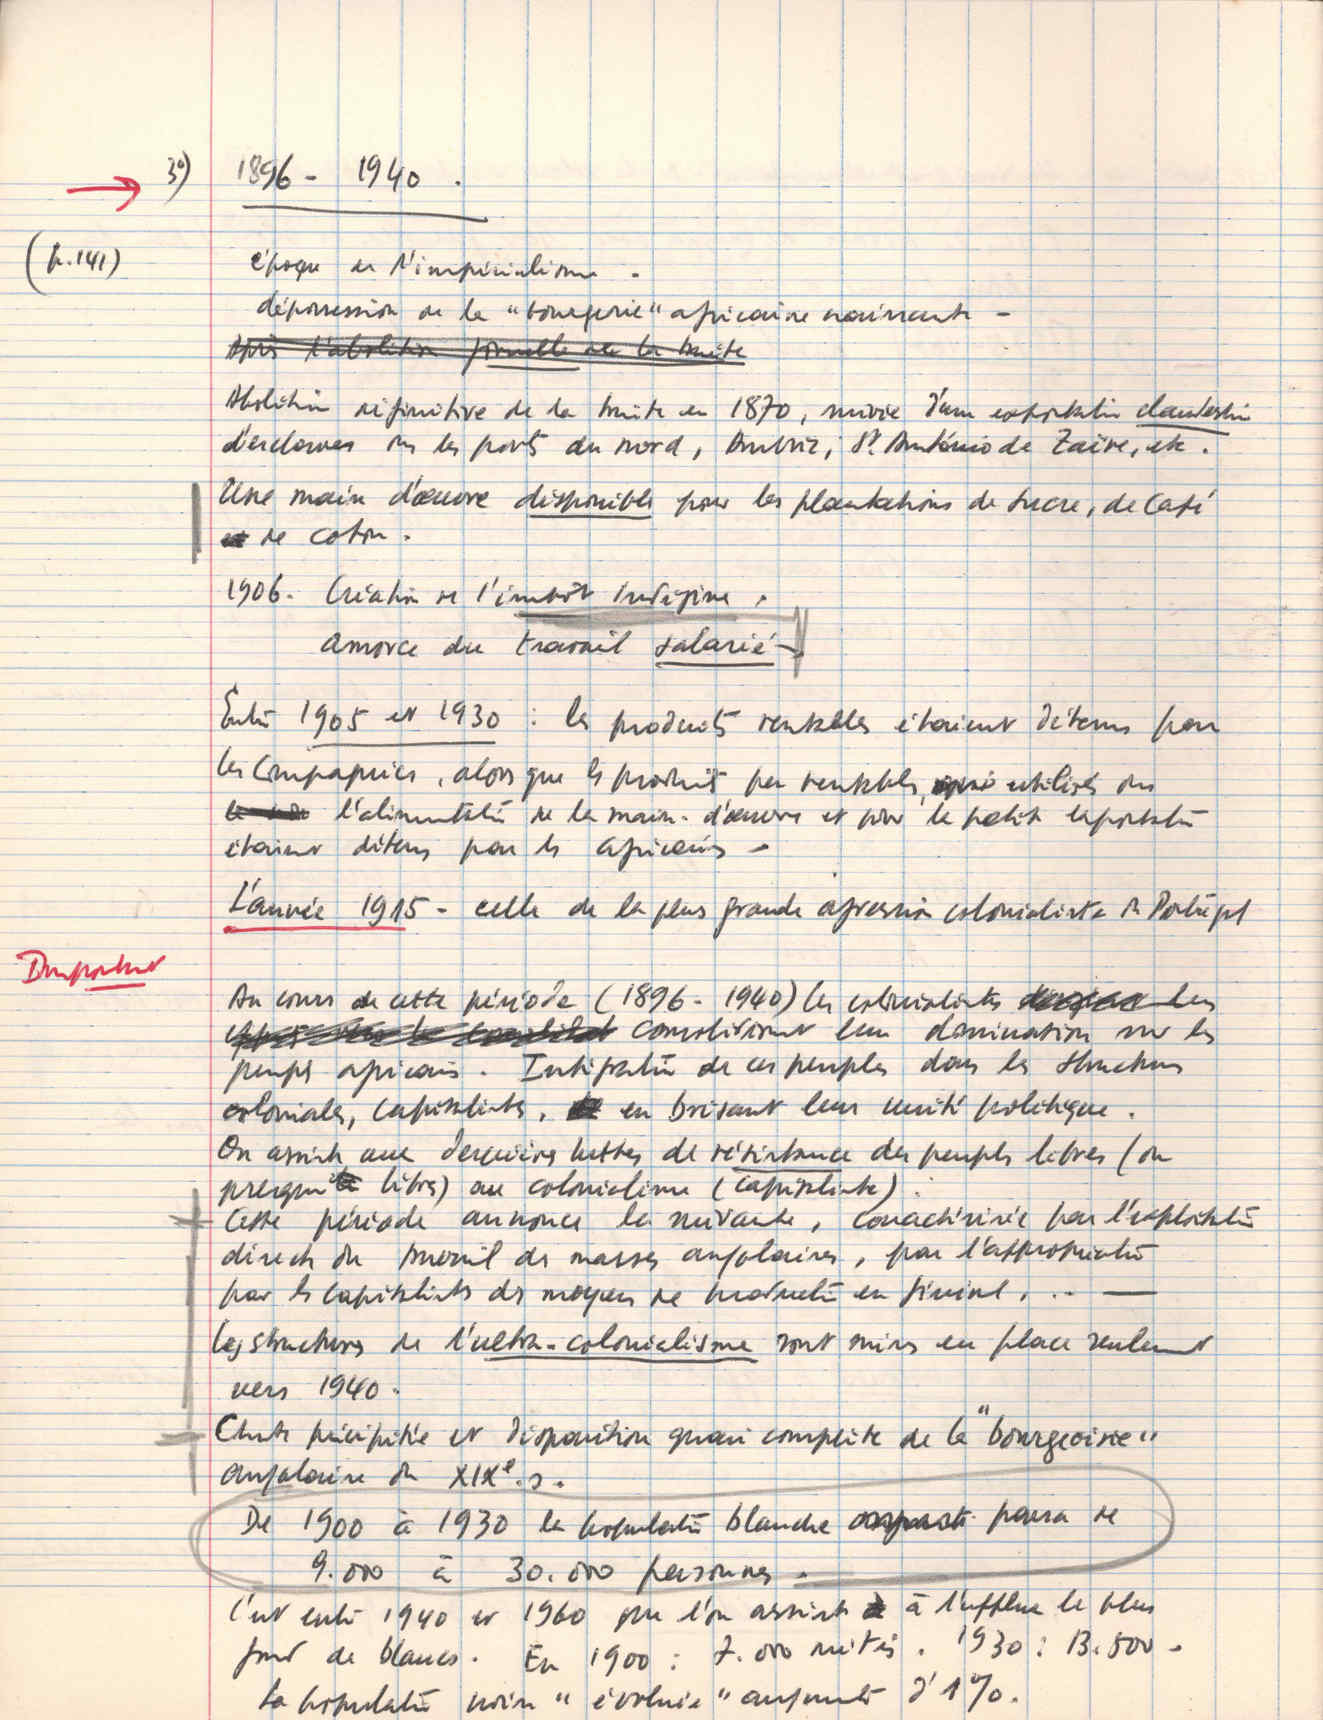 3º) 1896 - 1940.
(p.141) époque de l'impérialisme.
dépossession de la "bourgerie" africaine naissante -
Après l'abolition formelle de la traite
Abolition définitive de la traite en 1870, suivie d'une exportation clandestine
d'esclaves sur les ports du nord, Ambriz, St. António de Zaïre, etc.
Une main d'œuvre disponible pour les plantations de sucre, de café
et de coton.
1906. Création de l'impôt indigène.
amorce du travail salarié -
Entre 1905 et 1930 : les produits rentables étaient détenus par
les compagnies, alors que les produits peu rentables, utilisés dans
l'alimentation de la main-d'œuvre et pour la petite exportation
étaient détenus par les africains -
L'année 1915 - celle de la plus grande agression colonialiste du Portugal
Important
Au cours de cette période (1896 - 1940) les colonialistes
consolidèrent leur domination sur les
peuples africains. Intégration de ces peuples dans les structures
coloniales, capitalistes, en brisant leur unité politique.
On assiste aux dernières luttes de résistance des peuples libres (ou
presque libres) au colonialisme (capitaliste).
Cette période annonce la suivante, caractérisée par l'exploitation
directe du travail des masses angolaises, par l'appropriation
par les capitalistes des moyens de production en général, .. —
Les structures de l'ultra-colonialisme sont mises en place seulement
vers 1940.
Chute précipitée et disparition quasi complète de la "bourgeoisie"
angolaise du XIXe. s.
De 1900 à 1930 la population blanche passa de
9.000 à 30.000 personnes.
C'est entre 1940 et 1960 que l'on assiste à l'afflux le plus
fort de blancs. En 1900 : 7.000 métis. 1930 : 13.500 -
La population noire "évoluée" augmente d'1%.